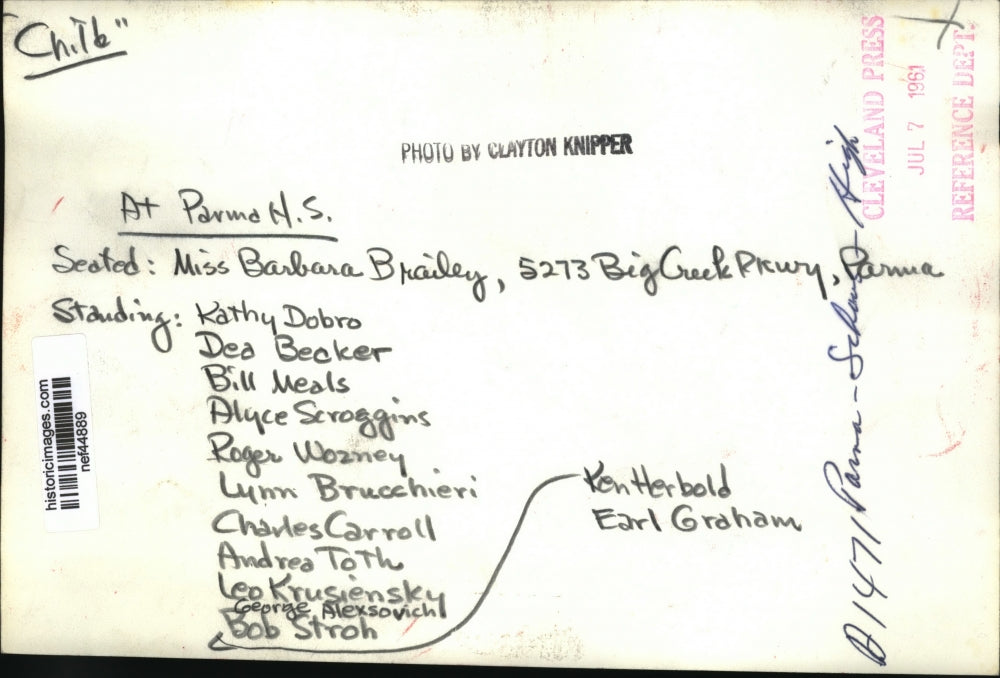 PHOTO BY CLAYTON KNIPPER
CLEVELAND PRESS
JUL 7 1961
REFERENCE DEPT.
At Parma H.S.
Seated: Miss Barbara Brailey, 5273 Big Creek Pkwy, Parma
Standing: Kathy Dobro
Dea Becker
Bill Meals
Alyce Scroggins
Roger Wozney
Lynn Brucchieri
Charles Carroll
Andrea Toth
Leo Krusiensky
George Alexsovich
Bob Stroh
Ken Herbold
Earl Graham
Parma - Schools - High
historicimages.com
nef44889